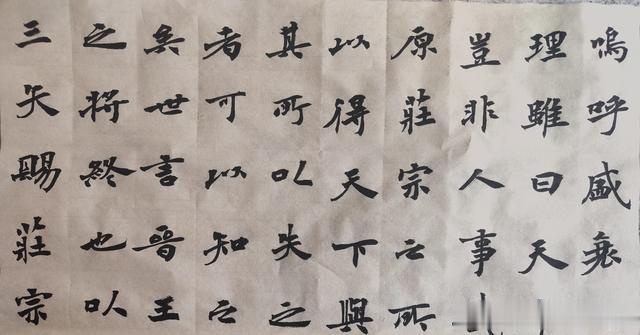 嗚呼盛衰
理雖曰天
豈非人事
原莊宗之所
以得天下與
其所以失之
者可以知之
矣世言晉王
之將終也以
三矢賜莊宗